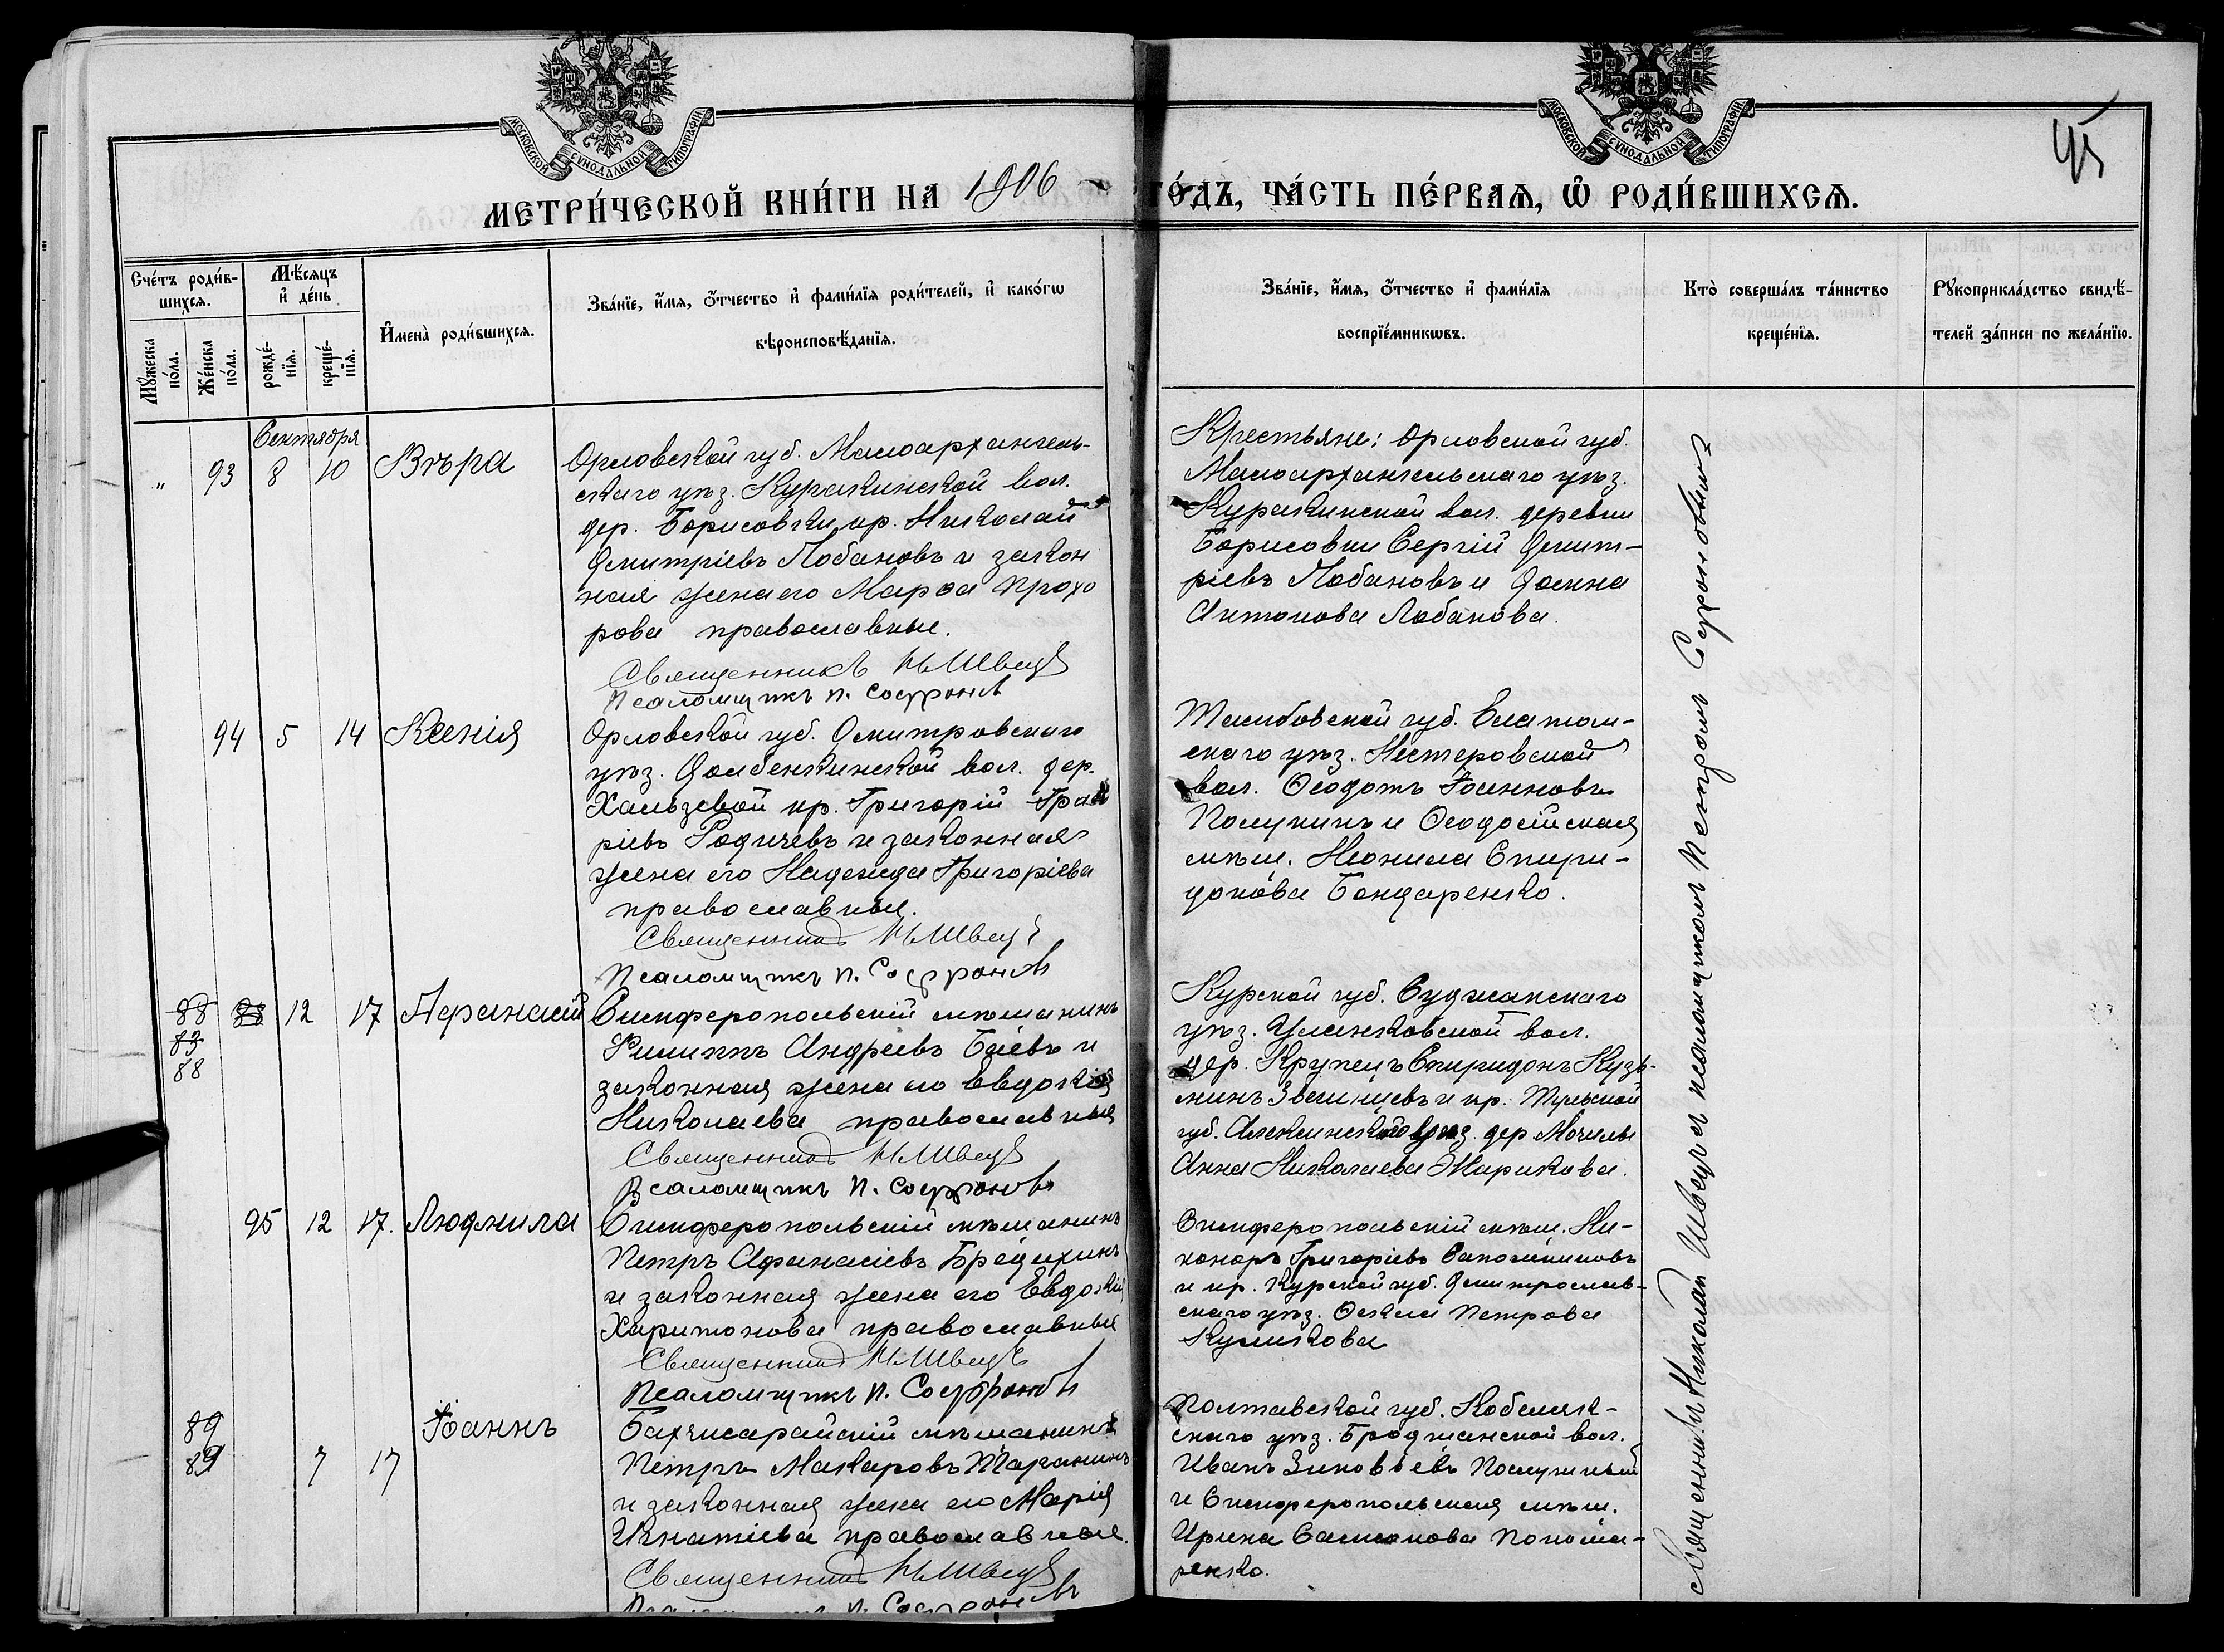 МОСКОВСКОЙ СѴНОДАЛЬНОЙ ТИПОГРАФІИ
МОСКОВСКОЙ СѴНОДАЛЬНОЙ ТИПОГРАФІИ
95
МЕТРИ́ЧЕСКОЙ КНИ́ГИ НА 1906 ГО́ДЪ, ЧА́СТЬ ПЕ́РВАѦ, Ѽ РОДИ́ВШИХСѦ.
Сче́тъ роди́в-
шихсѧ.
Мѣ́сѧцъ
и҆ де́нь
Мꙋ́жеска по́ла.
Же́нска по́ла.
рожде́-
нїѧ.
креще́-
нїѧ.
И҆мена̀ роди́вшихсѧ.
Зва́нїе, и҆́мѧ, ѻ҆́тчество и҆ фами́лїѧ роди́телей, и҆ како́гѡ
вѣроисповѣ́данїѧ.
Зва́нїе, и҆́мѧ, ѻ҆́тчество и҆ фами́лїѧ
воспрїе́мникѡвъ.
Кто̀ соверша́лъ та́инство
креще́нїѧ.
Рꙋкоприкла́дство свидѣ́-
телей за́писи по жела́нїю.
Сентября
" 93 8 10 Вѣра
Орловской губ. Малоархангель-
скаго уѣз. Куракинской вол.
дер. Борисовки кр. Николай
Дмитріевъ Лобановъ и закон
ная жена его Марѳа Прохо
рова православные.
Священникъ Н Швецъ
Псаломщикъ П. Софроновъ
Крестьяне: Орловской губ.
Малоархангельскаго уѣз.
Куракинской вол. деревни
Борисовки Сергій Дмит-
ріевъ Лобановъ и Домна
Антонова Лобанова.
94 5 14 Ксенія
Орловской губ. Дмитровскаго
уѣз. Долбенкинской вол. дер.
Хальзевой кр. Григорій
ріевъ Родичевъ и законная
жена его Надежда Григоріева
православные.
Священникъ Н Швецъ
Псаломщикъ П. Софроновъ
Тамбовской губ. Елатом-
скаго уѣз. Нестеровской
вол. Ѳеодотъ Іоанновъ
Полунинъ и Ѳеодосійская
мѣщ. Неонила Спири-
донова Бондаренко.
88 88 12 17 Афанасій
83
88
Симферопольскій мѣщанинъ
Филиппъ Андреевъ Баевъ и
законная жена его Евдокія
Николаева православные
Священникъ Н Швецъ
Псаломщикъ П. Софроновъ
Курской губ. Суджанскаго
уѣз. Уланковской вол.
дер. Крупецъ Спиридонъ Кузь-
минъ Звегинцевъ и кр. Тульской
губ. Алексинскаго уѣз. дер Мочилы
Анна Николаева Жарикова.
95 12 17. Людмила
Симферопольскій мѣщанинъ
Петръ Афанасіевъ Бредихинъ
и законная жена его Евдокія
Харитонова православные
Священникъ Н Швецъ
Псаломщикъ П. Софроновъ
Симферопольскій мѣщ. Ни-
каноръ Григоріевъ Сапожниковъ
и кр. Курской губ. Дмитрослав-
скаго уѣз. Ѳекла Петрова
Куликова
89
89 7 17 Іоаннъ
Бахчисарайскій мѣщанинъ
Петръ Макаровъ Таранинъ
и законная жена его Марія
Игнатіева православные.
Священникъ Н Швецъ
П. Софроновъ
Полтавской губ. Кобеляк-
скаго уѣз. Бродчанской вол.
Иванъ Зиновіевъ
и Симферопольская мѣщ.
Ирина Самсонова Понома-
ренко.
Священникъ Николай Швецъ и псаломщикомъ Петромъ Софроновымъ